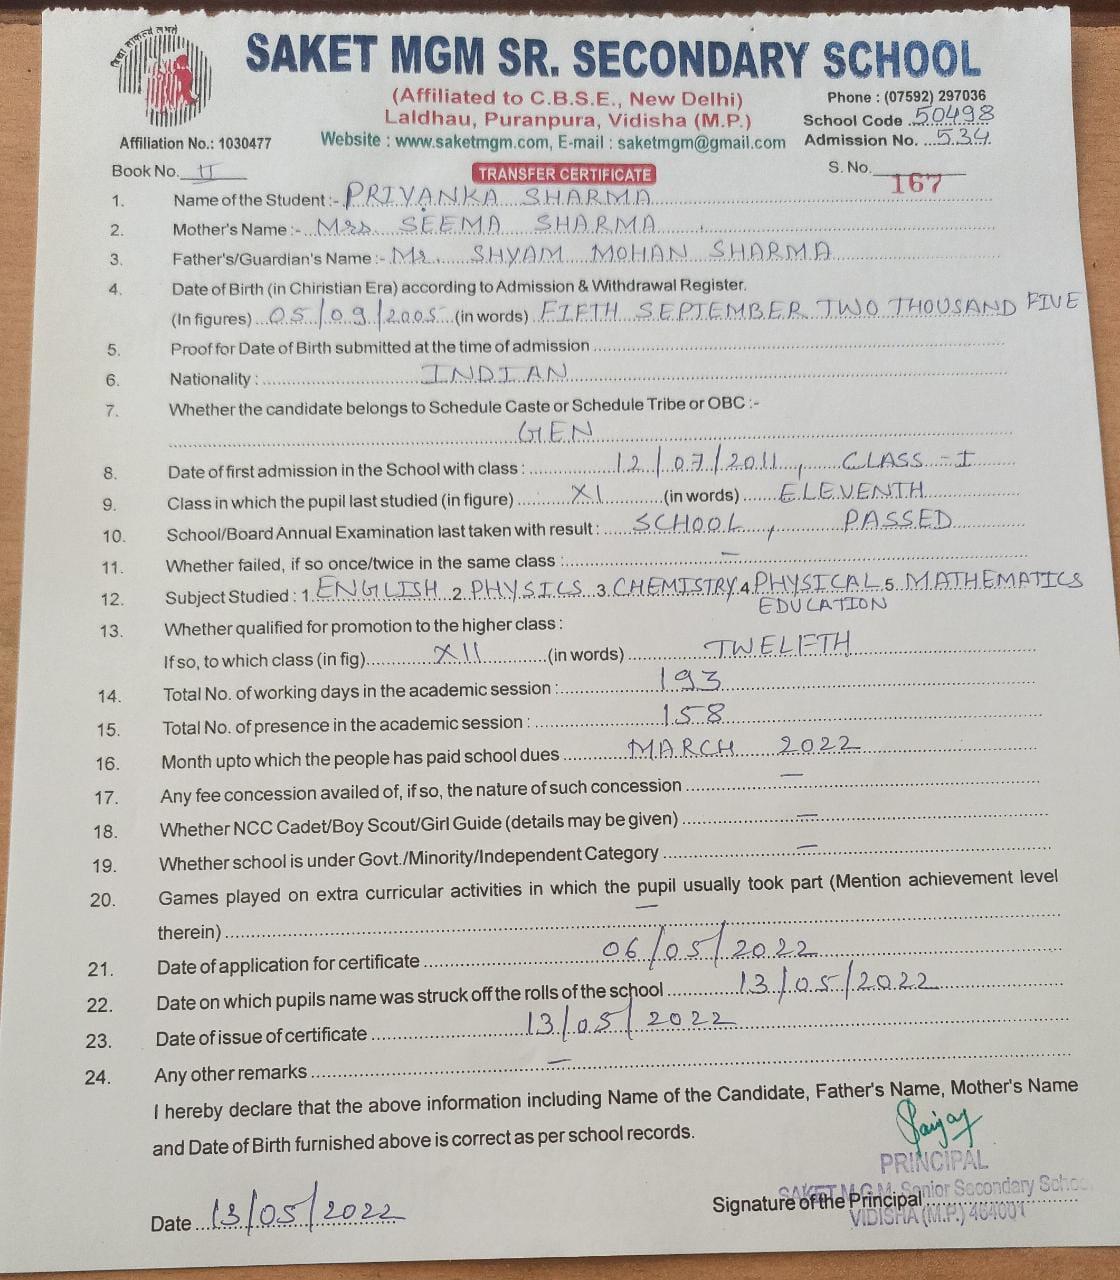 विद्या सामर्थ्य लभते
SAKET MGM SR. SECONDARY SCHOOL
(Affiliated to C.B.S.E., New Delhi)
Laldhau, Puranpura, Vidisha (M.P.)
Phone : (07592) 297036
School Code ..50498
Affiliation No.: 1030477
Website : www.saketmgm.com, E-mail : saketmgm@gmail.com
Admission No. ...534.
Book No. II
TRANSFER CERTIFICATE
S. No. 167
1. Name of the Student :- PRIYANKA SHARMA
2. Mother's Name :- Mrs. SEEMA SHARMA
3. Father's/Guardian's Name :- Mr. SHYAM MOHAN SHARMA
4. Date of Birth (in Chiristian Era) according to Admission & Withdrawal Register.
(In figures) 05/09/2005 (in words) FIFTH SEPTEMBER TWO THOUSAND FIVE
5. Proof for Date of Birth submitted at the time of admission
6. Nationality : INDIAN
7. Whether the candidate belongs to Schedule Caste or Schedule Tribe or OBC :-
GEN
8. Date of first admission in the School with class : 12/07/2011, CLASS - I
9. Class in which the pupil last studied (in figure) XI (in words) ELEVENTH
10. School/Board Annual Examination last taken with result : SCHOOL, PASSED
11. Whether failed, if so once/twice in the same class : —
12. Subject Studied : 1. ENGLISH 2. PHYSICS 3. CHEMISTRY 4. PHYSICAL 5. MATHEMATICS
EDUCATION
13. Whether qualified for promotion to the higher class :
If so, to which class (in fig) XII (in words) TWELFTH
14. Total No. of working days in the academic session : 193
15. Total No. of presence in the academic session : 158
16. Month upto which the people has paid school dues MARCH 2022
17. Any fee concession availed of, if so, the nature of such concession —
18. Whether NCC Cadet/Boy Scout/Girl Guide (details may be given) —
19. Whether school is under Govt./Minority/Independent Category —
20. Games played on extra curricular activities in which the pupil usually took part (Mention achievement level
therein) —
21. Date of application for certificate 06/05/2022
22. Date on which pupils name was struck off the rolls of the school 13/05/2022
23. Date of issue of certificate 13/05/2022
24. Any other remarks —
I hereby declare that the above information including Name of the Candidate, Father's Name, Mother's Name
and Date of Birth furnished above is correct as per school records.
PRINCIPAL
SAKET M.G.M. Senior Secondary School
Signature of the Principal
VIDISHA (M.P.) 464001
Date 13/05/2022